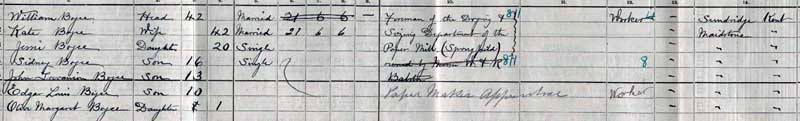 William Boyce Head 42 Married 21 6 6 — Foreman of the Drying & 811 Worker Sundridge Kent
Kate Boyce Wife 42 Married 21 6 6 Sizing Department of the Maidstone "
Jessie Boyce Daught 20 Single Paper Mill (Spring field)
Sidney Boyce Son 16 Single owned by W & R 811 8
John Boyce Son 13 Balston
Edgar Louis Boyce Son 10 Paper Maker Apprentice Worker
Olive Margaret Boyce Daughter 1